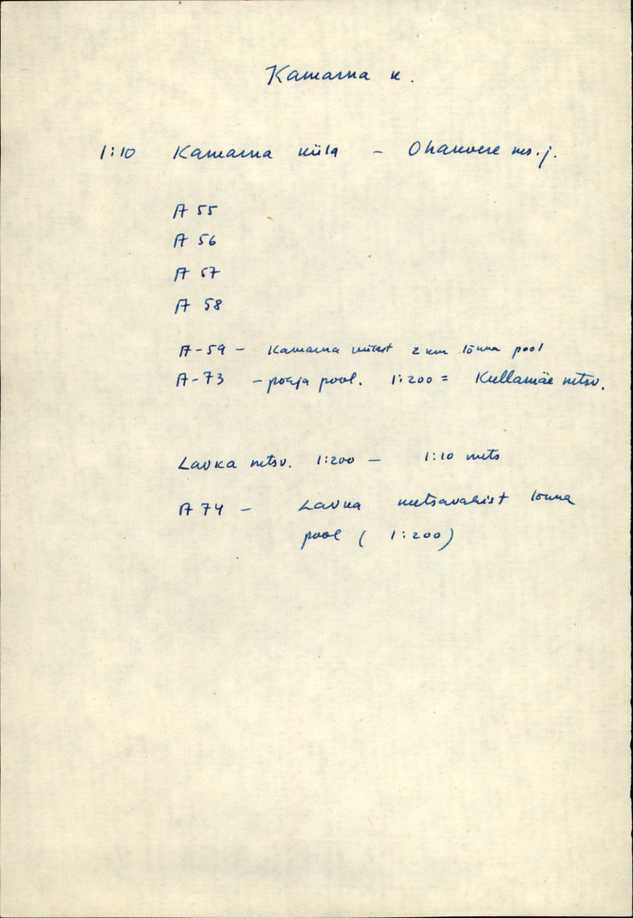 Kamarna k.
1:10 Kamarna küla - Oharvere ms.j.
A 55
A 56
A 57
A 58
A-59 - Kamarna külast 2 km lõuna pool
A-73 - põhja pool. 1:200 = Kullamäe metsv.
Lavka metsv. 1:200 - 1:10 mets
A 74 - Lavka metsavahist lõuna
pool ( 1:200)